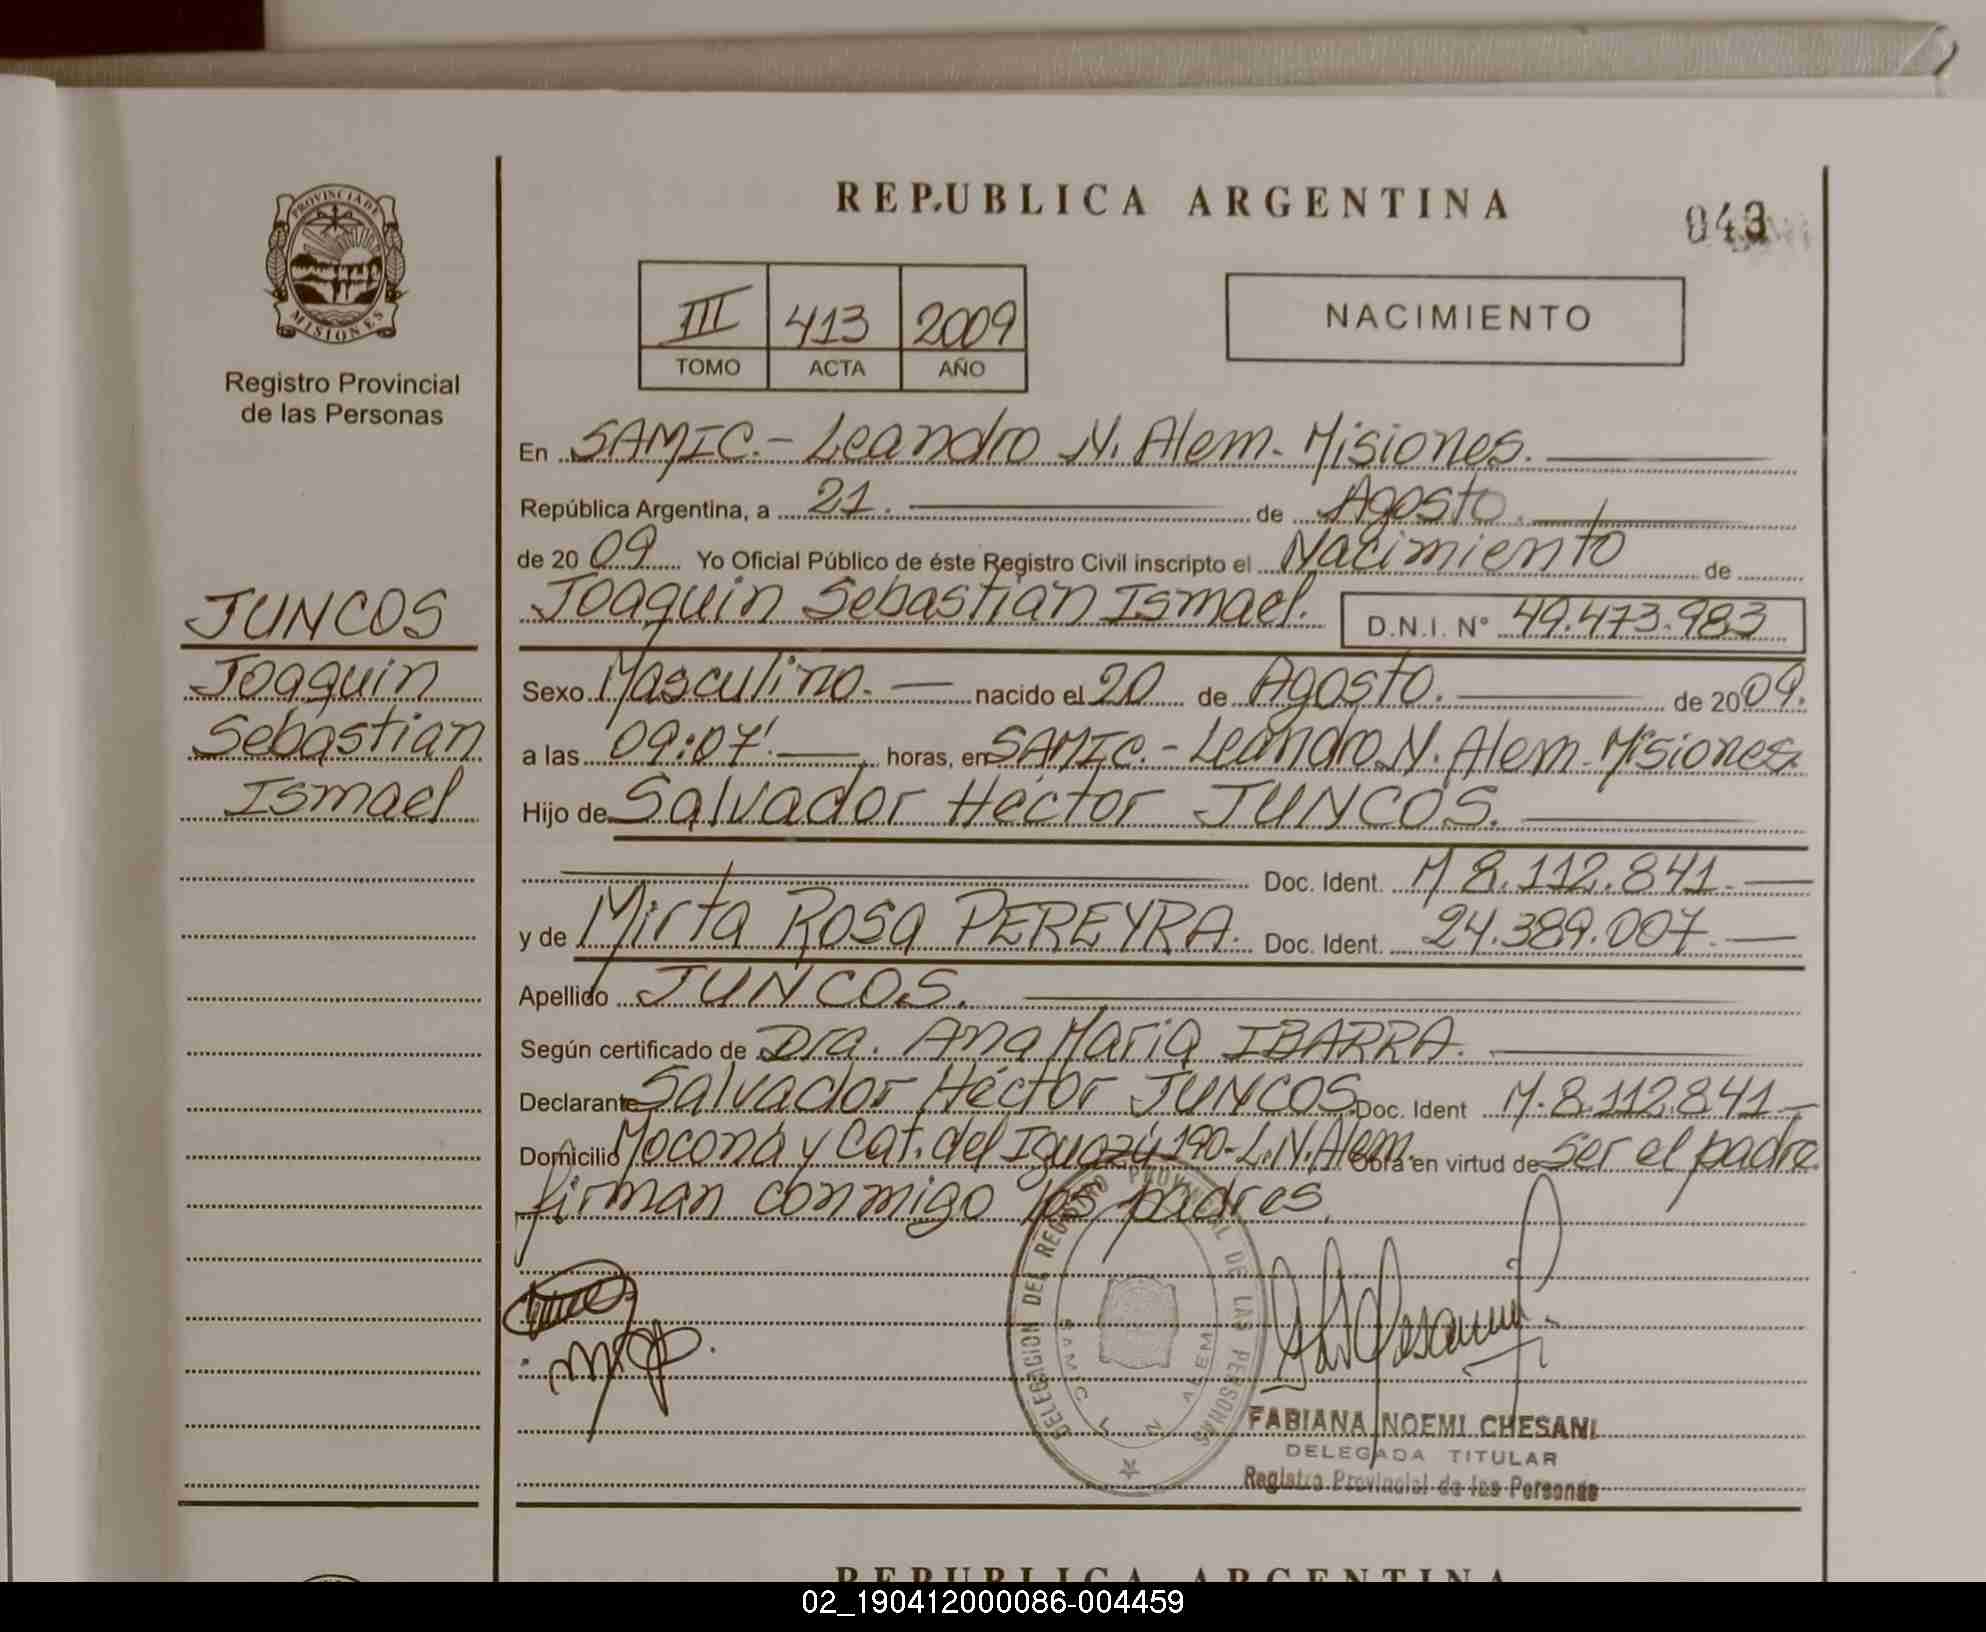 PROVINCIA DE
MISIONES
Registro Provincial
de las Personas
JUNCOS
Joaquin
Sebastian
Ismael
REPUBLICA ARGENTINA
043
III 413 2009
TOMO ACTA AÑO
NACIMIENTO
En SAMIC.- Leandro N. Alem- Misiones.
República Argentina, a 21. de Agosto.
de 20 09 Yo Oficial Público de éste Registro Civil inscripto el Nacimiento de
Joaquin Sebastian Ismael. D.N.I. N° 49.473.983
Sexo Masculino. nacido el 20 de Agosto. de 20 09.
a las 09:07'. horas, en SAMIC.- Leandro N. Alem- Misiones.
Hijo de Salvador Héctor JUNCOS.
Doc. Ident. M 8.112.841.
y de Mirta Rosa PEREYRA. Doc. Ident. 24.389.007.
Apellido JUNCOS.
Según certificado de Dra. Ana Maria IBARRA.
Declarante Salvador Héctor JUNCOS. Doc. Ident M. 8.112.841
Domicilio Moconá y Cat. del Iguazú 190- L.N. Alem. Obra en virtud de ser el padre
firman conmigo los padres.
DELEGACION DEL REGISTRO PROVINCIAL DE LAS PERSONAS
SAMIC L N ALEM
FABIANA NOEMI CHESANI
DELEGADA TITULAR
Registro Provincial de las Personas
REPUBLICA ARGENTINA
02_190412000086-004459